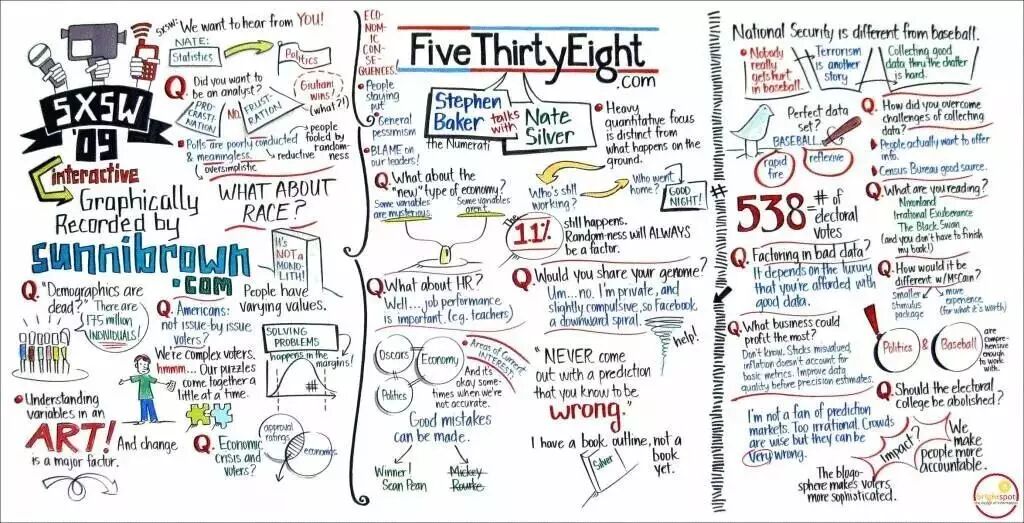 SXSW:
We want to hear from YOU!
NATE:
Statistics
Politics
SXSW
'09
interactive
Graphically
Recorded by
sunnibrown
.com
Q. Did you want
to be an analyst?
Giuliani
wins!
(what?!)
PRO-
CRASTI-
NATION
NO.
FRUST-
RATION
• Polls are poorly conducted
& meaningless.
oversimplistic
reductive
people
fooled by
random-
ness
WHAT ABOUT
RACE?
It's
NOT a
MONO-
LITH!
People have
varying values.
Q. "Demographics are
dead?"
There are
175 million
INDIVIDUALS!
Q. Americans:
not issue-by issue
voters?
We're complex voters.
hmmm... Our puzzles
come together a
little at a time.
SOLVING
PROBLEMS
happens in the
margins!
#
• Understanding
variables in an
ART!
is a major factor.
And change
Q. Economic
crisis and
voters?
approval
ratings
economics
ECO-
NOM-
IC
CON-
SE-
QUENCES!
• People
staying
put
• General
pessimism
• BLAME on
our leaders!
FiveThirtyEight
.com
Stephen
Baker
talks
with
Nate
Silver
the Numerati
• Heavy
quantitative focus
is distinct from
what happens on the
ground.
Q. What about the
"new" type of economy?
Some variables
are mysterious.
Some variables
aren't.
Who's still
working?
Who went
home?
GOOD
NIGHT!
The
1.1%
still happens.
Random-ness will ALWAYS
be a factor.
Q. What about HR?
Well... job performance
is important. (e.g. teachers)
Q. Would you share your genome?
Um...no. I'm private, and
slightly compulsive, so facebook
a downward spiral.
help!
Oscars
Economy
Politics
• Areas of current
INTEREST!
And it's
okay some-
times when we're
not accurate.
Good mistakes
can be made.
Winner!
Sean Penn
Mickey
Rourke
"NEVER come
out with a prediction
that you know to be
wrong."
I have a book outline, not a
book
yet.
Silver
National Security is different from baseball.
• Nobody
really
gets hurt
in baseball.
Terrorism
is another
story
Collecting good
data thru the chatter
is hard.
Perfect data
set?
BASEBALL
rapid
fire
reflexive
Q. How did you overcome
challenges of collecting
data?
People actually want to offer
info.
• Census Bureau good source.
#
538 = # of
electoral
votes
Q. What are you reading?
Nixonland
Irrational Exuberance
The Black Swan
(and you don't have to finish
my book!)
Q. Factoring in bad data?
It depends on the luxury
that you're afforded with
good data.
Q. How would it be
different w/McCain?
smaller
stimulus
package
more
experience
(for what it's worth)
Q. What business could
profit the most?
Don't know. Stocks misvalued,
inflation doesn't account for
basic metrics. Improve data
quality before precision estimates.
!
Politics
&
Baseball
are
compre-
hensive
enough
to work
with.
Q. Should the electoral
college be abolished?
I'm not a fan of prediction
markets. Too irrational. Crowds
are wise but they can be
very wrong.
Impact?
We
make
people more
accountable.
The blogo-
sphere makes voters
more sophisticated.
brightspot